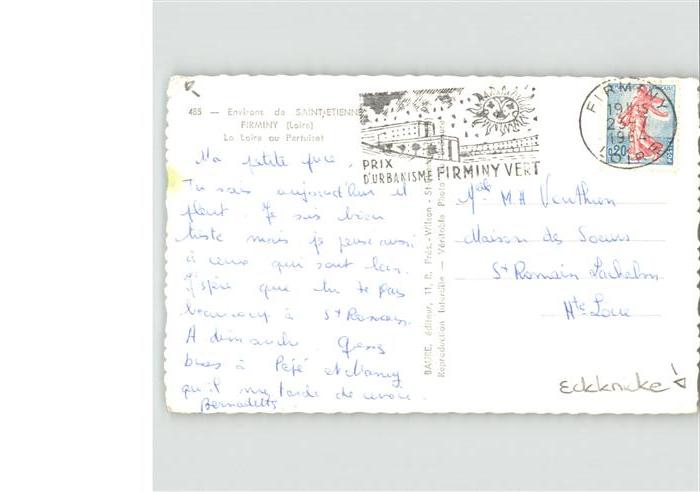 485 — Environs de SAINT-ETIENNE
FIRMINY (Loire)
La Loire au Pertuiset
Ma petite puce,
Tu sais aujourd'hui il
pleut. Je suis bien
triste mais je pense aussi
à ceux qui sont loin.
J'espère que tu te pas
beaucoup à St Romain.
A dimanche. Grosses
bises à Pépé et Mamy
qu'il me tarde de revoir.
Bernadette
PRIX
D'URBANISME FIRMINY VERT
FIRMINY
19H15
19
LOIRE
0,20
BAURE, éditeur, 11, R. Prés.-Wilson - St
Reproduction Interdite — Véritable Photo
Melle M H Vouthion
Maison des Soeurs
St Romain Lachalm
Hte Loire
Eckknicke